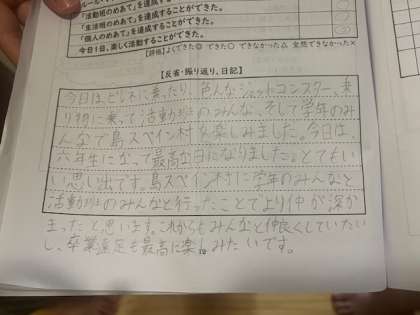 「活動班のめあて」を達成することができた。
「生活班のめあて」を達成することができた。
「個人のめあて」を達成することができた。
今日1日、楽しく活動することができた。
【評価】よくできた◎ できた○ できなかった△ 全然できなかった×
【反省・振り返り、日記】
今日は、ピレネに乗ったり、色んなジェットコースター、乗
り物に乗って活動班のみんな、そして学年のみ
んなで志摩スペイン村を楽しみました。今日は、
六年生になって最高な日になりました。とてもい
い思い出です。志摩スペイン村に学年のみんなと
活動班のみんなと行ったことでより仲が深
まったと思います。これからもみんなと仲良くしていたい
し、卒業遠足も最高に楽しみたいです。